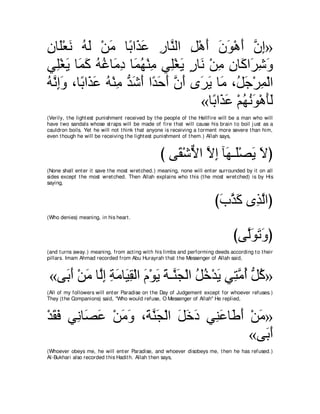 «إِنَّ أَهْوَنَ أَهْلِ النَّارِ عَذَابًا مَنْ لَهُ نَعْلَانِ
وَشِرَاكَانِ مِنْ نَارٍ يَغْلِي مِنْهُمَا دِمَاغُهُ كَمَا يَغْلِي
الْمِرْجَلُ، مَا يَرَى أَنَّ أَحَدًا أَشَدُّ مِنْهُ عَذَابًا، وَإِنَّهُ
لَأَهْوَنُهُمْ عَذَابًا»
(Verily, the lightest punishment received by the people of the Hellfire will be a man who will
have two sandals whose straps will be made of fire that will cause his brain to boil just as a
cauldron boils. Yet he will not think that anyone is receiving a torment more severe than him,
even though he will be receiving the lightest punishment of them.) Allah says,
(لَا يَصْلَـهَآ إِلاَّ الاٌّشْقَى )
(None shall enter it save the most wretched.) meaning, none will enter surrounded by it on all
sides except the most wretched. Then Allah explains who this (the most wretched) is by His
saying,
(الَّذِى كَذَّبَ)
(Who denies) meaning, in his heart.
(وَتَوَلَّى)
(and turns away.) meaning, from acting with his limbs and performing deeds according to their
pillars. Imam Ahmad recorded from Abu Hurayrah that the Messenger of Allah said,
«كُلُّ أُمَّتِي يَدْخُلُ الْجَنَّـةَ يَوْمَ الْقِيَامَةِ إِلَّا مَنْ أَبَى»
(All of my followers will enter Paradise on the Day of Judgement except for whoever refuses.)
They (the Companions) said, "Who would refuse, O Messenger of Allah'' He replied,
«مَنْ أَطَاعَنِي دَخَلَ الْجَنَّةَ، وَمَنْ عَصَانِي فَقَدْ
أَبَى»
(Whoever obeys me, he will enter Paradise, and whoever disobeys me, then he has refused.)
Al-Bukhari also recorded this Hadith. Allah then says,